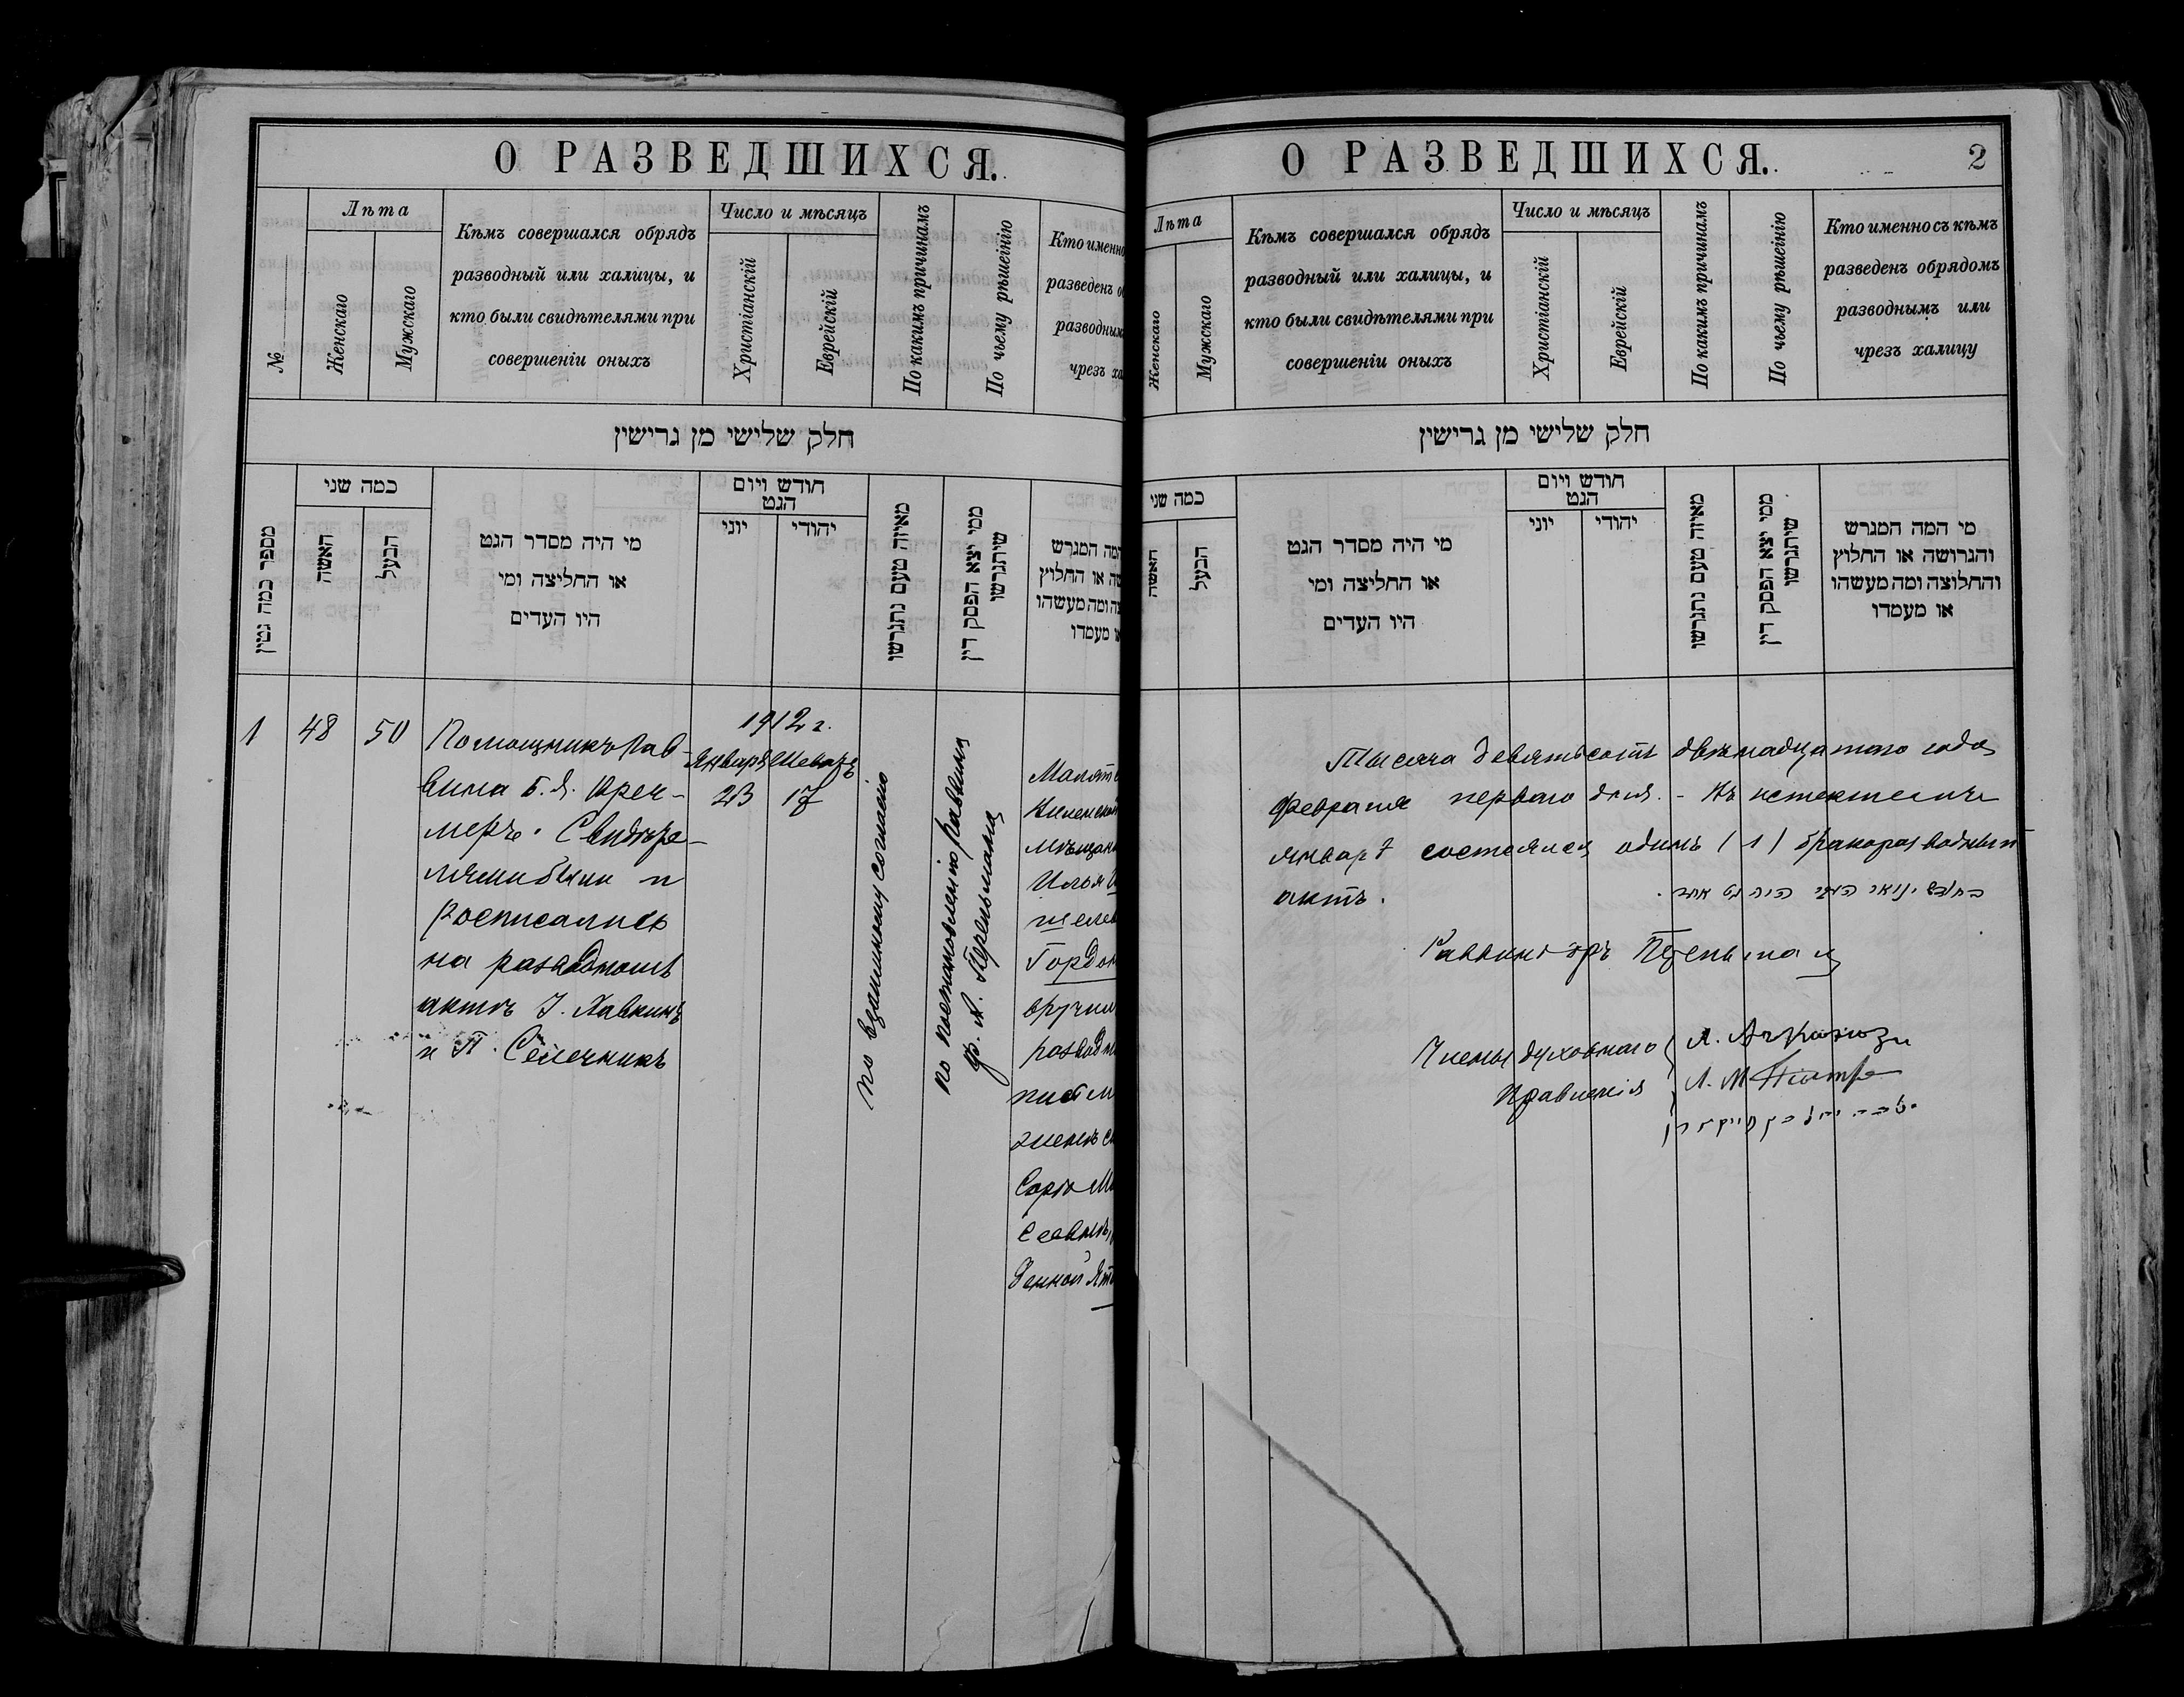 О РАЗВЕДШИХСЯ.
№
Лѣта
Женскаго
Мужскаго
Кѣмъ совершался обрядъ
разводный или халицы, и
кто были свидѣтелями при
совершеніи оныхъ
Число и мѣсяцъ
Христіанскій
Еврейскій
По какимъ причинамъ
По чьему рѣшенію
Кто именно
разведенъ
разводным
чрезъ
חלק שלישי מן גרישין
מספר כמה גטין
כמה שני
האשה
הבעל
מי היה מסדר הגט
או החליצה ומי
היו העדים
חודש ויום
הגט
יוני
יהודי
מאיזה טעם נתגרשו
ממי יצא הפסק דין
שיתגרשו
המה המגרש
או החלוץ
ומה מעשהו
או מעמדו
1
48
50
Помощникъ Рав-
вина Б. Я.
Свидѣте-
лями были и
росписались
на разводномъ
актѣ І. Хавкинъ
и П.
1912 г.
Января Шевать
23 17
по взаимному согласію
по постановленію раввина
Ф. А. Перельмана
мѣщан
Илья
Гордон
вручил
разводн
Сорѣ
О РАЗВЕДШИХСЯ.
2
Лѣта
Женскаго
Мужскаго
Кѣмъ совершался обрядъ
разводный или халицы, и
кто были свидѣтелями при
совершеніи оныхъ
Число и мѣсяцъ
Христіанскій
Еврейскій
По какимъ причинамъ
По чьему рѣшенію
Кто именно съ кѣмъ
разведенъ обрядомъ
разводнымъ или
чрезъ халицу
חלק שלישי מן גרישין
כמה שני
האשה
הבעל
מי היה מסדר הגט
או החליצה ומי
היו העדים
חודש ויום
הגט
יוני
יהודי
מאיזה טעם נתגרשו
ממי יצא הפסק דין
שיתגרשו
מי המה המגרש
והגרושה או החלוץ
והחלוצה ומה מעשהו
או מעמדו
Тысяча девятьсотъ двѣнадцатаго года
февраля перваго дня. - Въ истекшемъ
январѣ состоялся одинъ (1) бракоразводный
актъ.
בחדש ינואר היה גט אחד.
Раввинъ
Члены духовнаго
Правленія